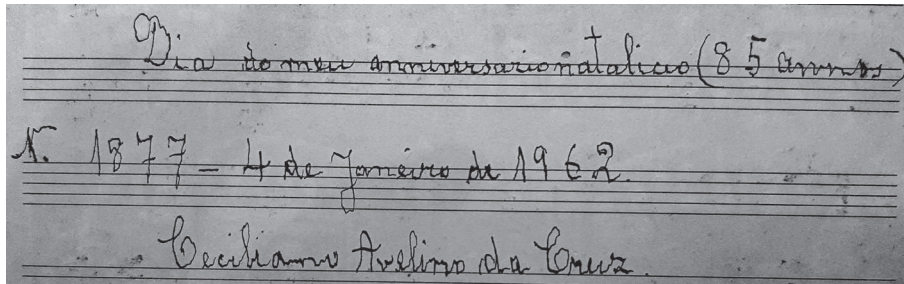 Dia do meu anniversario natalicio (85 annos)
N. 1877 - 4 de Janeiro de 1962.
Ceciliano Avelino da Cruz.